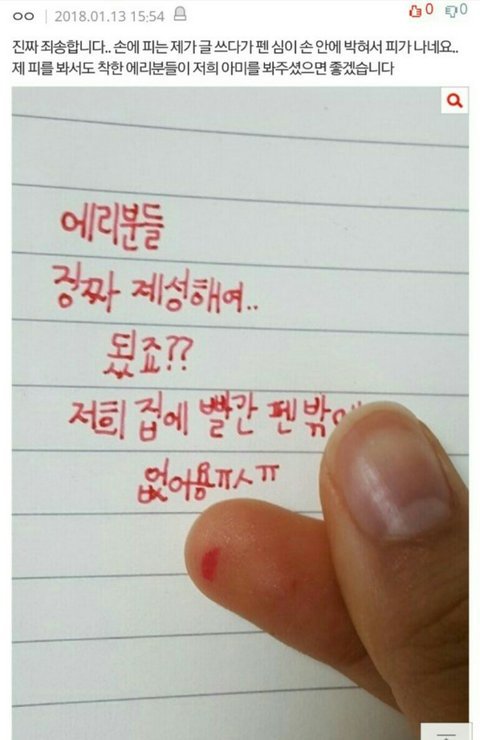 ㅇㅇ 2018.01.13 15:54 0 0
진짜 죄송합니다.. 손에 피는 제가 글 쓰다가 펜 심이 손 안에 박혀서 피가 나네요..
제 피를 봐서도 착한 에리분들이 저희 아미를 봐주셨으면 좋겠습니다
에리분들
징짜 제성해여..
됬죠??
저희 집에 빨간 펜 밖에
없어용ㅠㅅㅠ